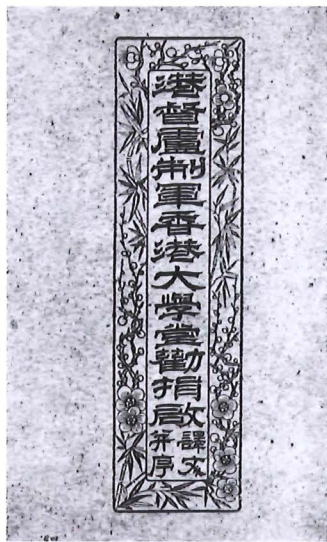 港督盧制軍香港大學堂勸捐啟
譯文
并序